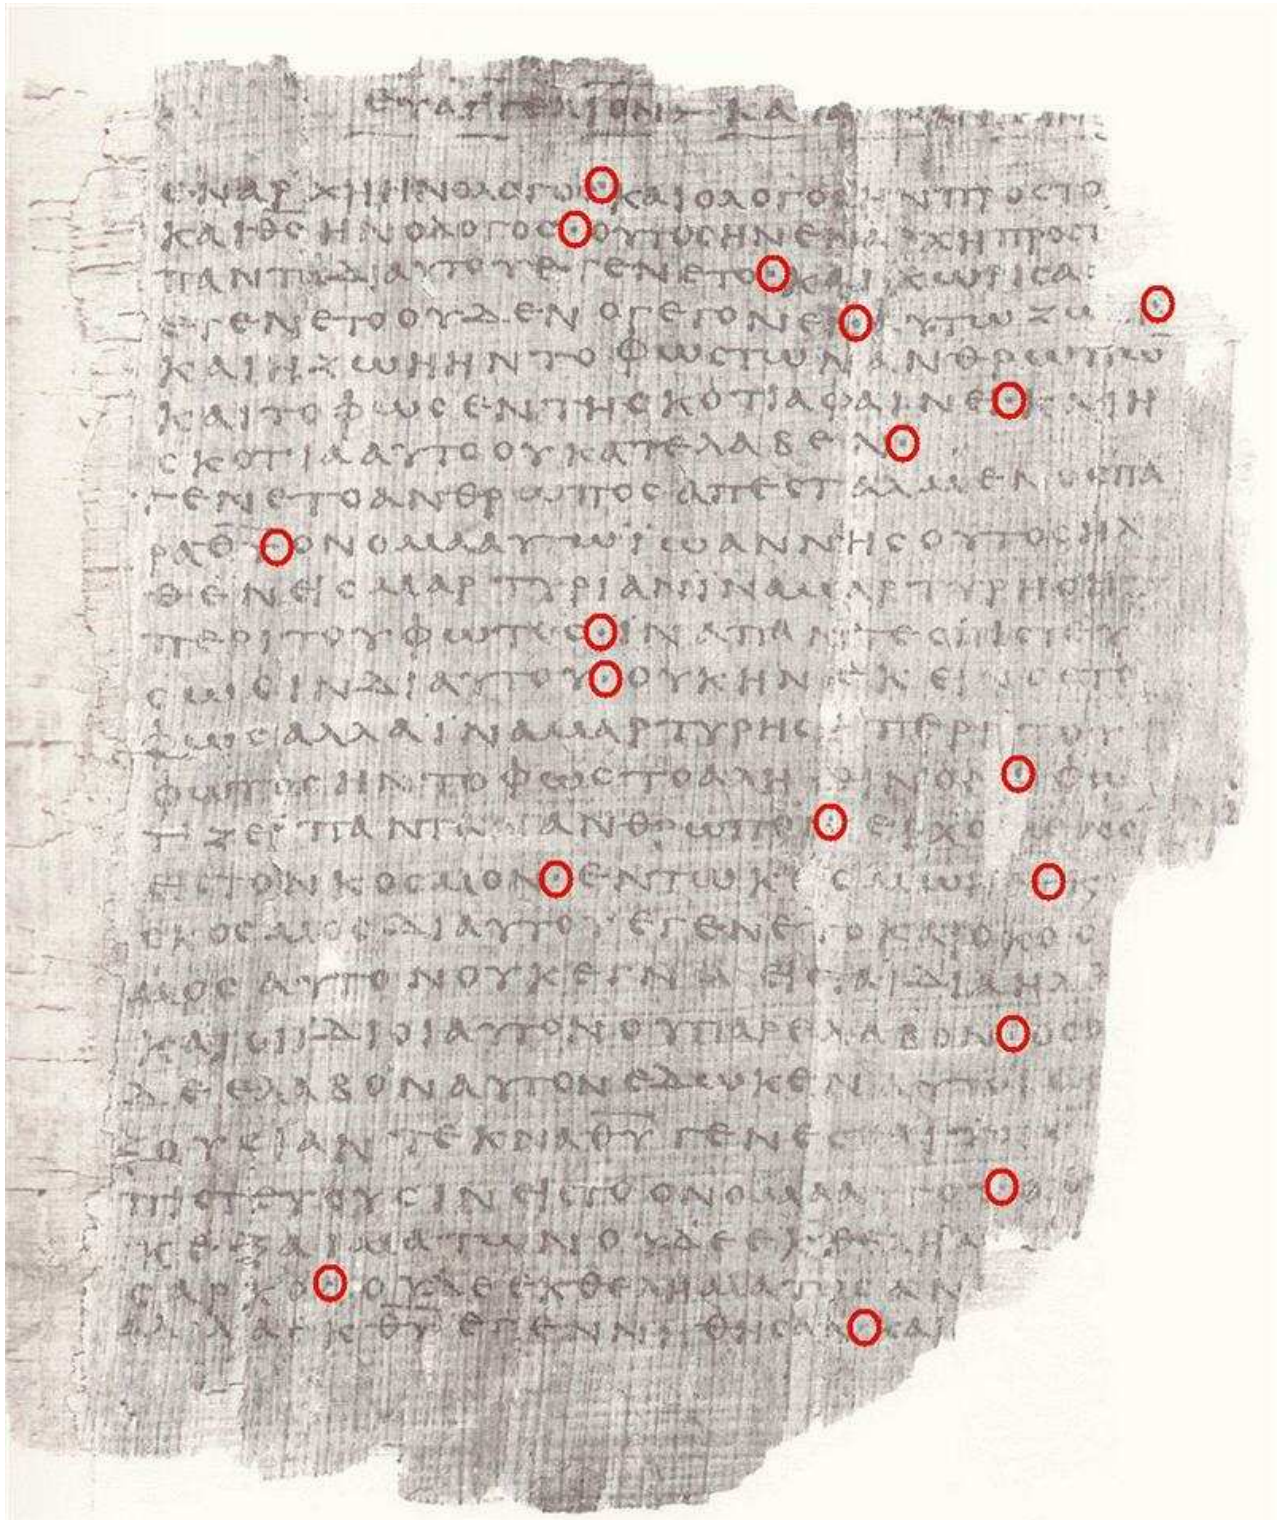 ΕΥΑΓΓΕΛΙΟΝ ΚΑ
ΕΝΑΡΧΗΗΝΟΛΟΓΟΣ·ΚΑΙΟΛΟΓΟΣΗΝΠΡΟΣΤΟ
ΚΑΙΘΣΗΝΟΛΟΓΟΣ·ΟΥΤΟΣΗΝΕΝΑΡΧΗΠΡΟΣΤ
ΠΑΝΤΑΔΙΑΥΤΟΥΕΓΕΝΕΤΟ·ΚΑΙΧΩΡΙΣΑ
ΕΓΕΝΕΤΟΟΥΔΕΝΟΓΕΓΟΝΕΝ·ΥΤΩΖΩ ·
ΚΑΙΗΖΩΗΗΝΤΟΦΩΣΤΩΝΑΝΘΡΩΠΩ
ΚΑΙΤΟΦΩΣΕΝΤΗΣΚΟΤΙΑΦΑΙΝΕΙ·ΚΑΙΗ
ΣΚΟΤΙΑΑΥΤΟΟΥΚΑΤΕΛΑΒΕΝ·
ΓΕΝΕΤΟΑΝΘΡΩΠΟΣΑΠΕΣΤΑΛΜΕΝΟΣΠΑ
ΡΑΘΥ·ΟΝΟΜΑΑΥΤΩΪΩΑΝΝΗΣΟΥΤΟΣΗΛ
ΘΕΝΕΙΣΜΑΡΤΥΡΙΑΝΪΝΑΜΑΡΤΥΡΗΣΗ
ΠΕΡΙΤΟΥΦΩΤΟΣ·ΪΝΑΠΑΝΤΕΣΠΙΣΤΕΥ
ΣΩΣΙΝΔΙΑΥΤΟΥ·ΟΥΚΗΝΕΚΕΙΝΟΣΤΟ
ΦΩΣΑΛΛΑΪΝΑΜΑΡΤΥΡΗΣΗΠΕΡΙΤΟΥ
ΦΩΤΟΣΗΝΤΟΦΩΣΤΟΑΛΗΘΙΝΟΝ·ΦΩ
ΤΙΖΕΙΠΑΝΤΑΑΝΘΡΩΠΟΝ·ΕΡΧΟΜΕΝΟ
ΕΙΣΤΟΝΚΟΣΜΟΝ·ΕΝΤΩΚΟΣΜΩΗΝ·Κ
ΟΚΟΣΜΟΣΔΙΑΥΤΟΥΕΓΕΝΕΤΟΚΑΙΟΚΟΣ
ΜΟΣΑΥΤΟΝΟΥΚΕΓΝΩΕΙΣΤΑΙΔΙΑΗΛΘ
ΚΑΙΟΙΙΔΙΟΙΑΥΤΟΝΟΥΠΑΡΕΛΑΒΟΝ·ΟΣΟ
ΔΕΕΛΑΒΟΝΑΥΤΟΝΕΔΩΚΕΝΑΥΤΟΙΣ
ΞΟΥΣΙΑΝΤΕΚΝΑΘΥΓΕΝΕΣΘΑΙΤΟΙΣ
ΠΙΣΤΕΥΟΥΣΙΝΕΙΣΤΟΟΝΟΜΑΑΥΤΟΥ·Ο
ΚΕΞΑΙΜΑΤΩΝΟΥΔΕΕΚΘΕΛΗΜΑ
ΣΑΡΚΟΣ·ΟΥΔΕΕΚΘΕΛΗΜΑΤΟΣΑΝ
ΑΛΛΑΕΚΘΥΕΓΕΝΝΗΘΗΣΑΝ·ΚΑΙ